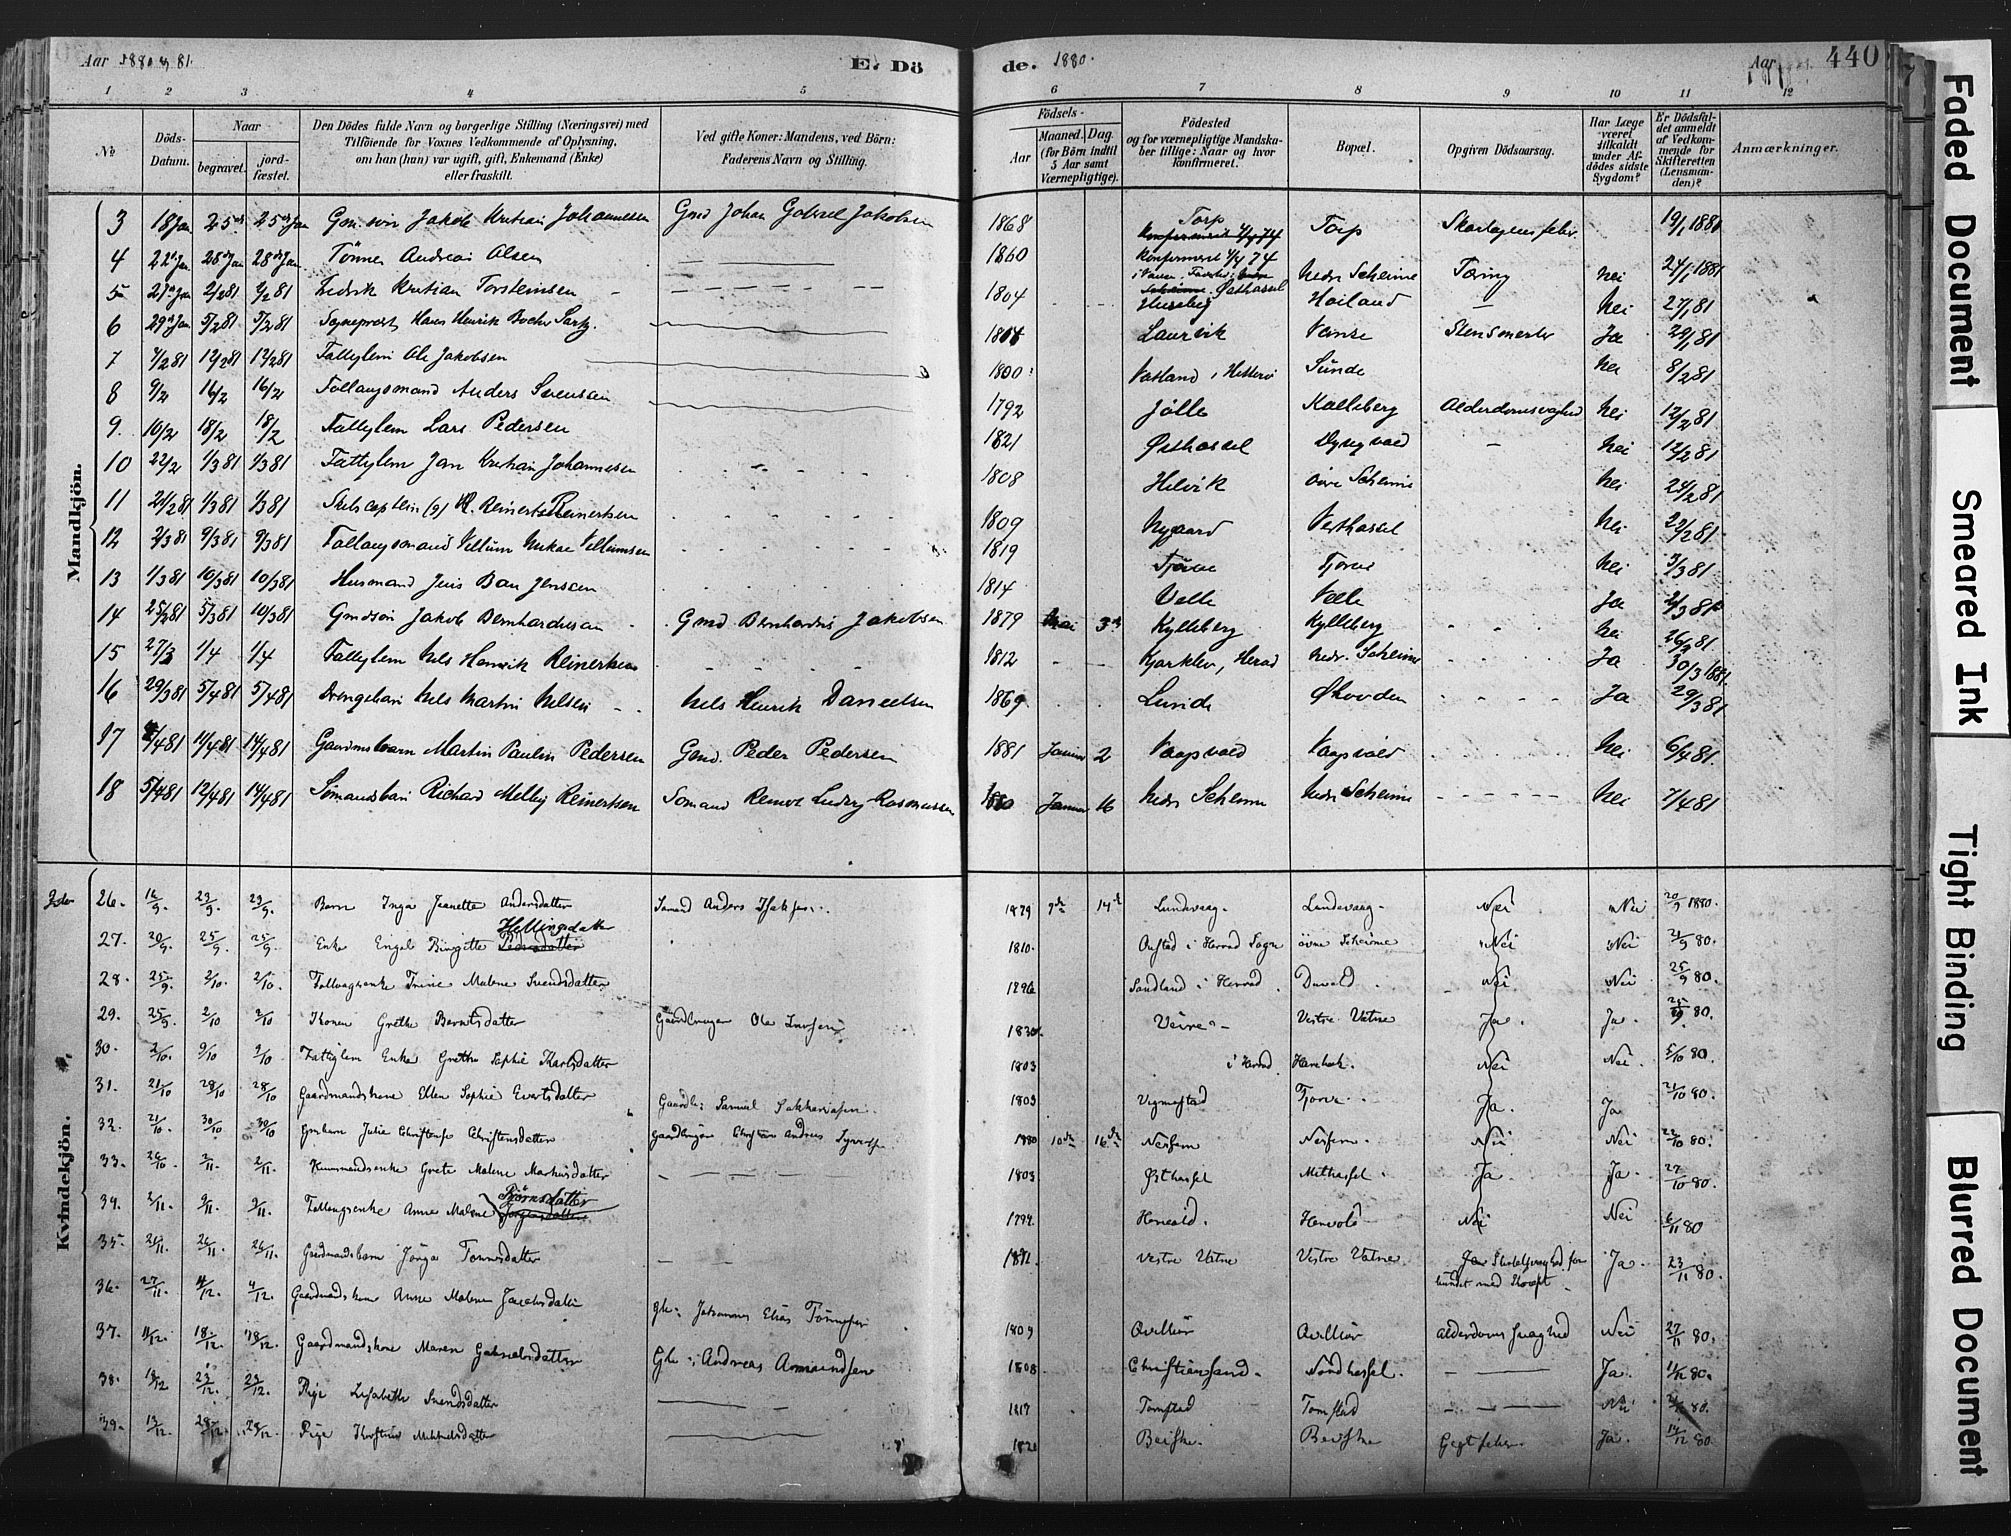 Aar 1880 og 81. E. Dö
de. 1880. Aar 440
1 2 3 4 5 6 7 8 9 10 11 12
№ Döds-Datum. Naar begravet. jord-fæstet. Den Dödes fulde Navn og borgerlige Stilling (Næringsvei) med Tilföiende for Voxnes Vedkommende af Oplysning, om han (hun) var ugift, gift, Enkemand (Enke) eller fraskilt. Ved gifte Koner: Mandens, ved Börn: Faderens Navn og Stilling. Födsels- Aar Maaned. Dag. (for Börn indtil 5 Aar samt Værnepligtige). Födested og for værnepligtige Mandskaber tillige: Naar og hvor konfirmeret. Bopæl. Opgiven Dödsaarsag. Har Læge været tilkaldt under Afdödes sidste Sygdom? Er Dödsfaldet anmeldt af Vedkommende for Skifteretten (Lensmanden)? Anmærkninger.
Mandkjön.
3 18 Jan 25 Jan 25 Jan Gm. sön Jakob Kristian Johannessen Gmd Johan Gabriel Jakobsen 1868 Torp Torp Skarlagensfeber 19/1 1881
4 22 Jan 28 Jan 28 Jan Tönnes Andreas Olsen 1860 Konfirmeret 4/4 74 Nedr Scheime Tæring Nei 24/1 1881
5 27 Jan 2/2 81 2/2 81 Fredrik Kristian Torsteinsen 1804 Huseby Hoiland Nei 27/1 81
6 29 Jan 5/2 81 5/2 81 Sogneprest Hans Henrik Bocher Sartz. Laurvik Vanse Stensmerter Ja 29/1 81
7 7/2 81 12/2 81 12/2 81 Fattiglem Ole Jakobsen 1800 Vatland i Hitterö Sünde Nei 8/2 81
8 9/2 16/2 16/2 Follaugsmand Anders Svensen 1792 Jölle Kalleberg Alderdomssvaghed Nei 12/2 81
9. 10/2 18/2 18/2 Fattiglem Lars Pedersen 1821 Østhassel Dyngvold Nei 12/2 81
10 22/2 1/3 81 1/3 81 Fattiglem Jan Kristian Johannesen 1808 Hilvik övre Scheime Nei 24/2 81
11 21/2 81 1/3 81 1/3 81 Skibscaptein Reinertsen 1809 Nygaard Vesthassel Nei 22/2 81
12 2/3 81 9/3 81 9/3 81 Follaugsmand Villum Mikae Villumsen 1819 Tjörve Tjorve Nei 3/3 81
13 1/3 81 10/3 81 10/3 81 Husmand Jens Bau Jensen 1814 Velle Velle Ja 2/3 81
14 25/2 81 5/3 81 10/3 81 Gmdsön Jakob Bernhardusen Gmd Bernhardus Jakobsen 1879 Mai 3 Kylleberg Kylleberg Nei 26/2 81
15 27/3 1/4 1/4 Fattiglem Nels Henrik Reinertsen 1812 Kjorklev, Herad Nedr. Scheime Ja 30/3 1881
16 29/3 81 5/4 81 5/4 81 Drengebarn Nels Martin Nelsen Nels Henrik Danielsen 1869 Lunde Ja 29/3 81
17 4/4 81 11/4 81 14/4 81 Gaardmsbarn Martin Paulin Pedersen Gmd. Peder Pedersen 1881 Januar 2 Vaagsvold Vaagsvold Nei 6/4 81
18 5/4 81 12/4 81 14/4 81 Sömandsbarn Richard Melling Reinertsen Sömand Reinert Ludvig Rasmussen 1880 Januar 16 Nedr Scheime Nedr Scheime Nei 7/4 81
Kvindekjön.
26. 16/9. 23/9. 23/9. Barn Inga Jeanette Andersdatter Sömand Anders Isaksen. 1879 9de 14de Lundevaag. Lundevaag. Nei Nei 20/9 1880.
27. 20/9. 25/9. 25/9. Enke Engel Birgitte Pedersdatter Hellingsdatter 1810. Opstad i Herrad Sogn övre Scheime Nei Nei 21/9 80.
28. 25/9. 2/10. 2/10. Follaugsenke Trine Malene Svendsdatter 1796 Sandland i Herrad. Duvold. Nei. Nei 25/9 80.
29. 25/9. 2/10 2/10 Konen Grethe Berntsdatter Gaardbruger Ole Larsen 1830. Veire. Vestre Vatne Ja. Ja. 25/9 80.
30. 2/10. 9/10 9/10 Fattiglem Enke Grethe Sophie Karlsdatter 1803 i Herrad. Nei Nei. 5/10 80.
31. 21/10 28/10 28/10 Gaardmandskone Ellen Sophie Evertsdatter Gaardb: Samuel Sakkariasen. 1803 Vigmostad Tjorve. Ja. Ja 21/10 80.
32. 21/10. 30/10 30/10 Gmbarn Julie Christense Christensdatter Gaardbruger Christen Andreas Syvertsen 1880 10de 16de Nesheim Nesheim. Nei Nei 22/10 80.
33. 26/10 2/11. 2/11. Huusmandsenke Grete Malene Markusdatter 1803 Østhassel Mithassel. Ja. Ja. 27/10 80.
34. 2/11. 9/11. 9/11. Follaugsenke Anne Malene Björnsdatter 1794. Hervold. Hervold Nei Nei 6/11 80
35. 21/11. 26/11. 26/11. Gaardmandsbarn Jörga Tönnesdatter 1872. Vestre Vatne Vestre Vatne Ja. 23/11 80.
36. 27/11. 4/12. 4/12. Gaardmandskone Anne Malene Jacobsdatter gb: Johannes Elias Tönnesen 1809 Ovilliör Ovilliör Alderdoms svaghed Nei 27/11 80.
37. 11/12. 18/12. 18/12. Gaardmandskone Maren Gabrielsdatter Gb: Andreas Aamundsen 1808. Christiansand. Nordhassel. Ja. 11/12 80.
38. 18/12 23/12. 23/12. Pige Lisabeth Svendsdatter 1817 Tomstad Tomstad Nei 80.
39. 13/12. 28/12. 28/12. Pige Kirstine Mikkelsdatter Briske Briske Gigtfeber. Ja. 14/12 80.
Faded Document
Smeared Ink
Tight Binding
Blurred Document